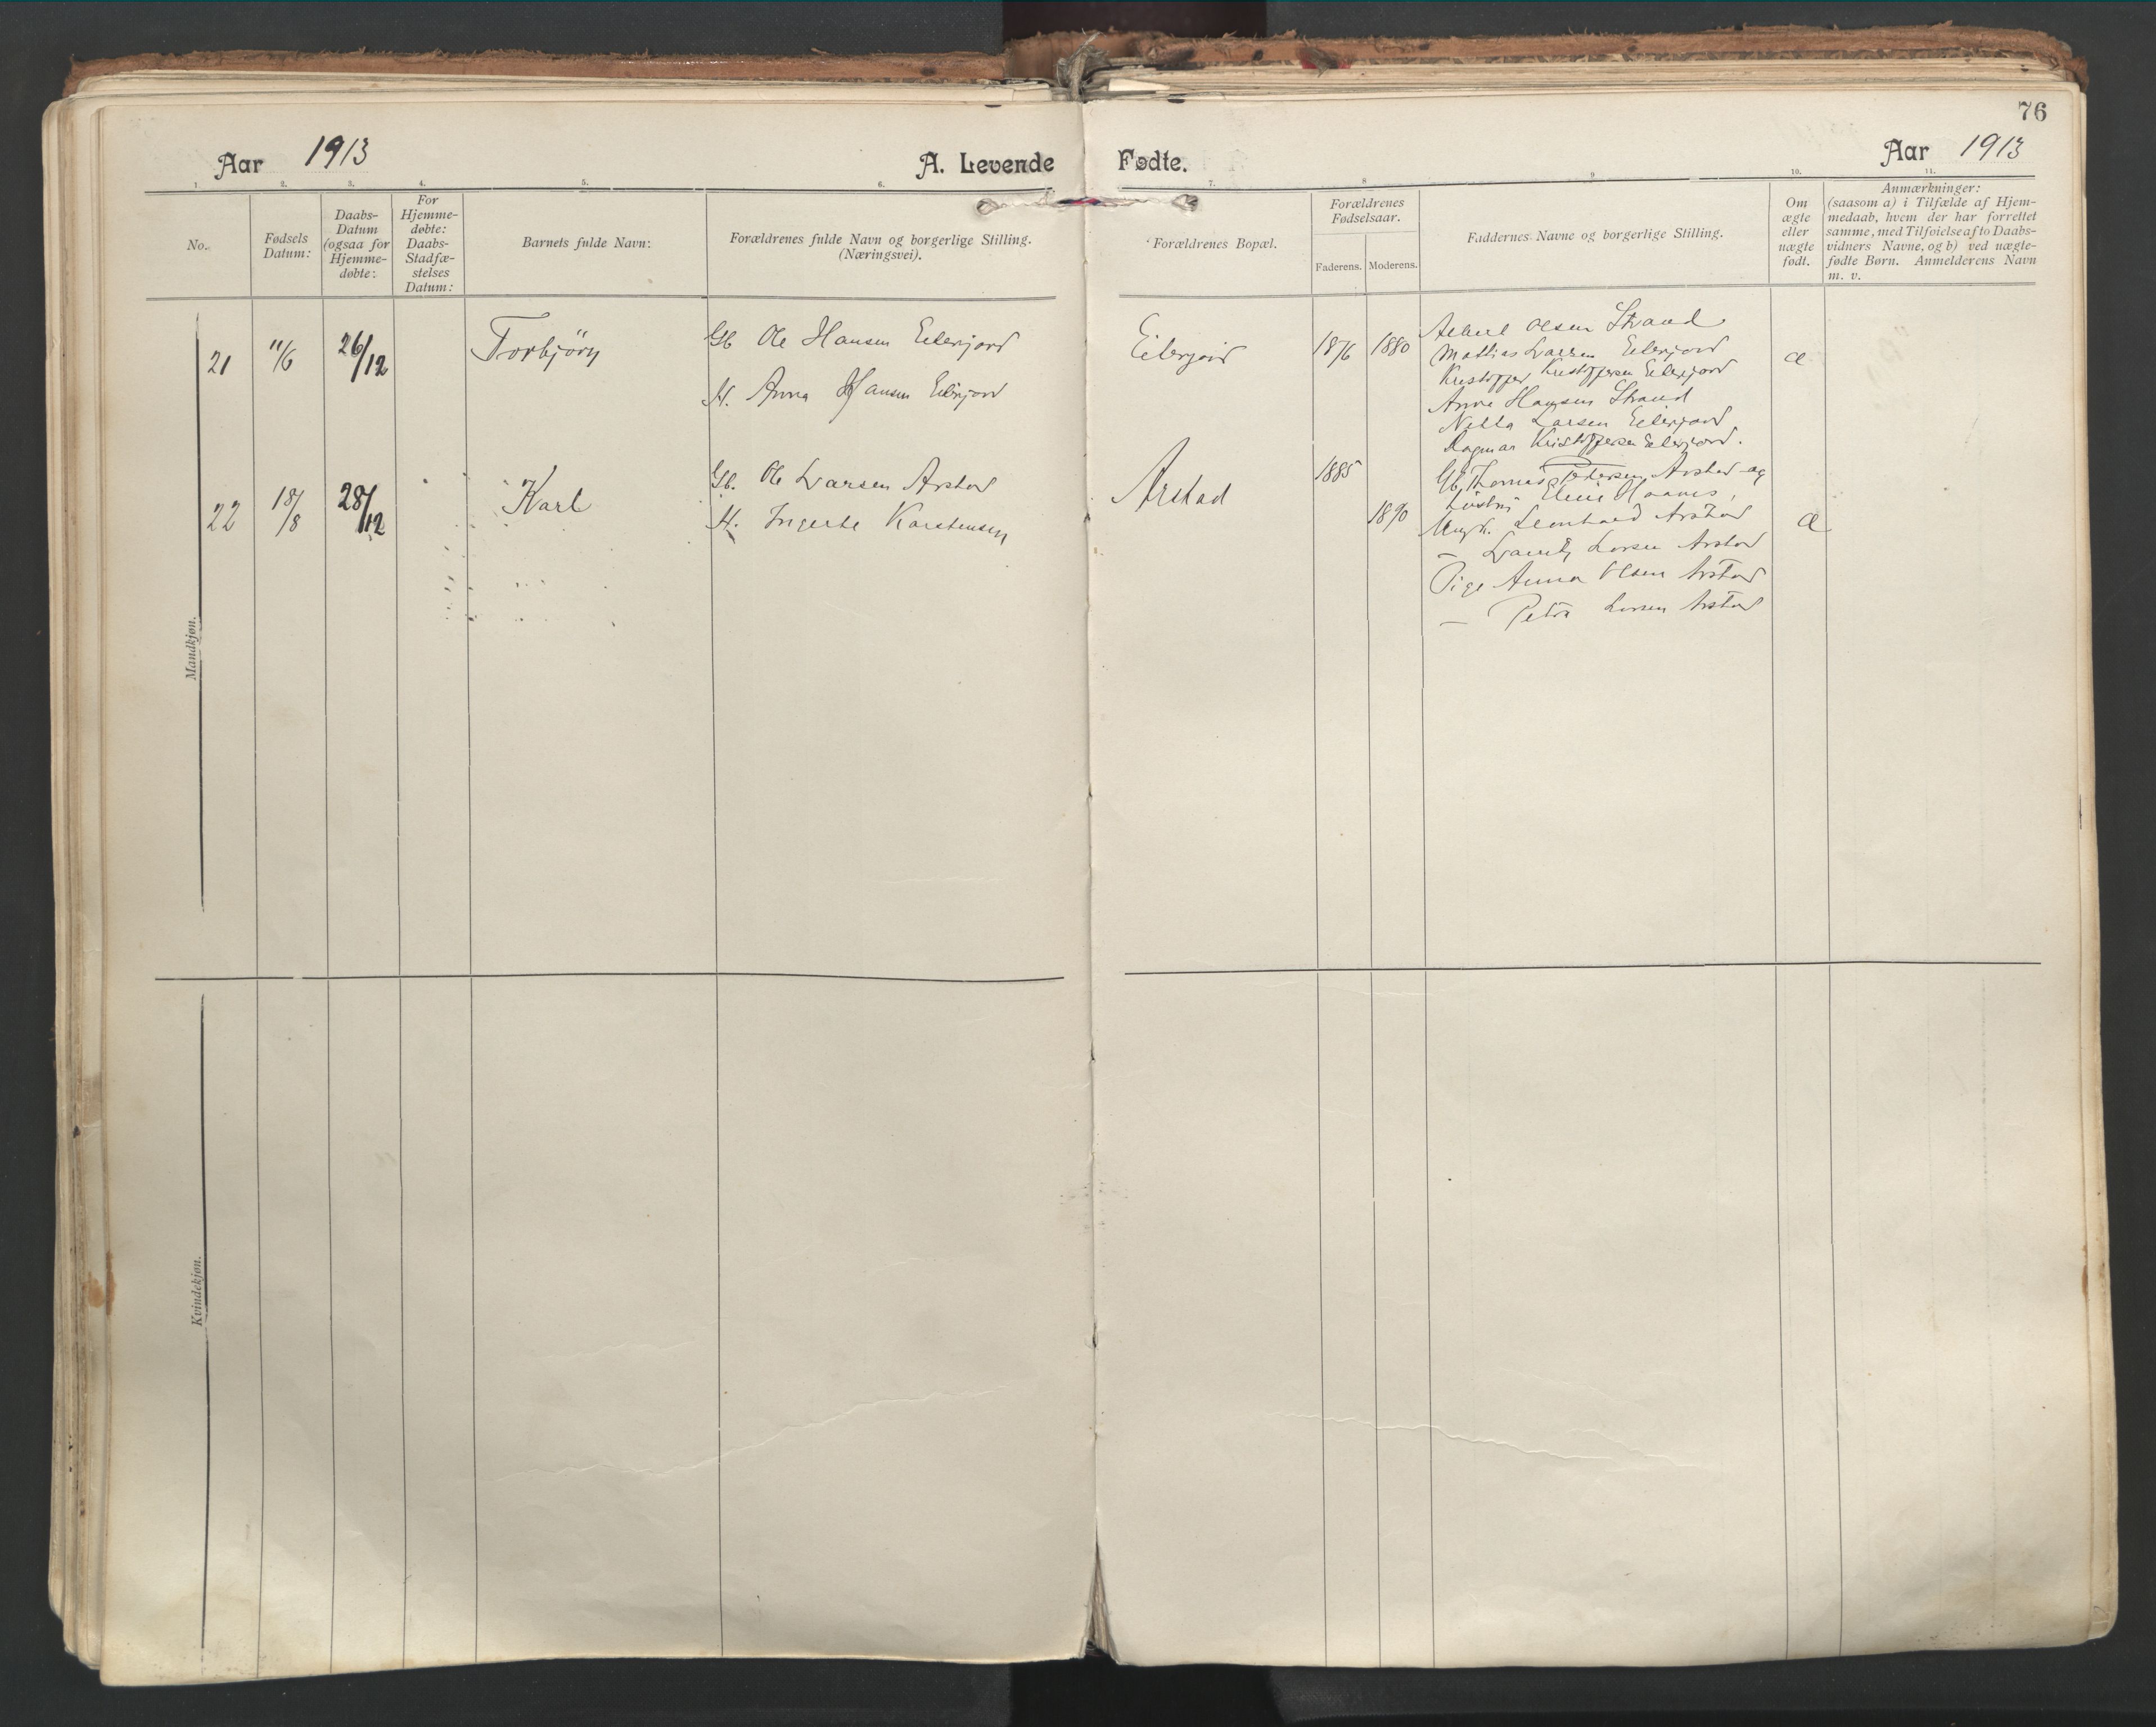 76
Aar 1913 A. Levende Fødte. Aar 1913
1. 2. 3. 4. 5. 6. 7. 8 9 10. 11.
No.
Fødsels
Datum:
Daabs-
Datum
(ogsaa for
Hjemme-
døbte:
For
Hjemme-
døbte:
Daabs-
Stadfæ-
stelses
Datum:
Barnets fulde Navn:
Forældrenes fulde Navn og borgerlige Stilling.
(Næringsvei).
Forældrenes Bopæl.
Forældrenes
Fødselsaar.
Faderens. Moderens.
Faddernes Navne og borgerlige Stilling.
Om
ægte
eller
uægte
født.
Anmærkninger:
(saasom a) i Tilfælde af Hjem-
medaab, hvem der har forrettet
samme, med Tilføielse af to Daabs-
vidners Navne, og b) ved uægte-
fødte Børn. Anmelderens Navn
m. v.
Mandkjøn.
21 11/6 26/12 Torbjörn
Gb Ole Hansen Eilerjord
H. Anna Hansen Eilerjord
Eilerjord 1876 1880
Albert Olsen Strand
Mathias Larsen Eilerjord
Kristoffer Kristoffersen Eilerjord
Anne Hansen Strand
Larsen Eilerjord
Dagmar Kristoffersen Eilerjord.
æ
22 18/8 28/12 Karl
Gb. Ole Larsen Arstad
H. Karstensen
Arstad 1885 1890
Gb. Thomas Petersen Arstad og
Hustru
Ungk. Leonhard Arstad
— Larsen Arstad
Pige Anna Olsen Arstad
— Petra Larsen Arstad
æ
Kvindekjøn.